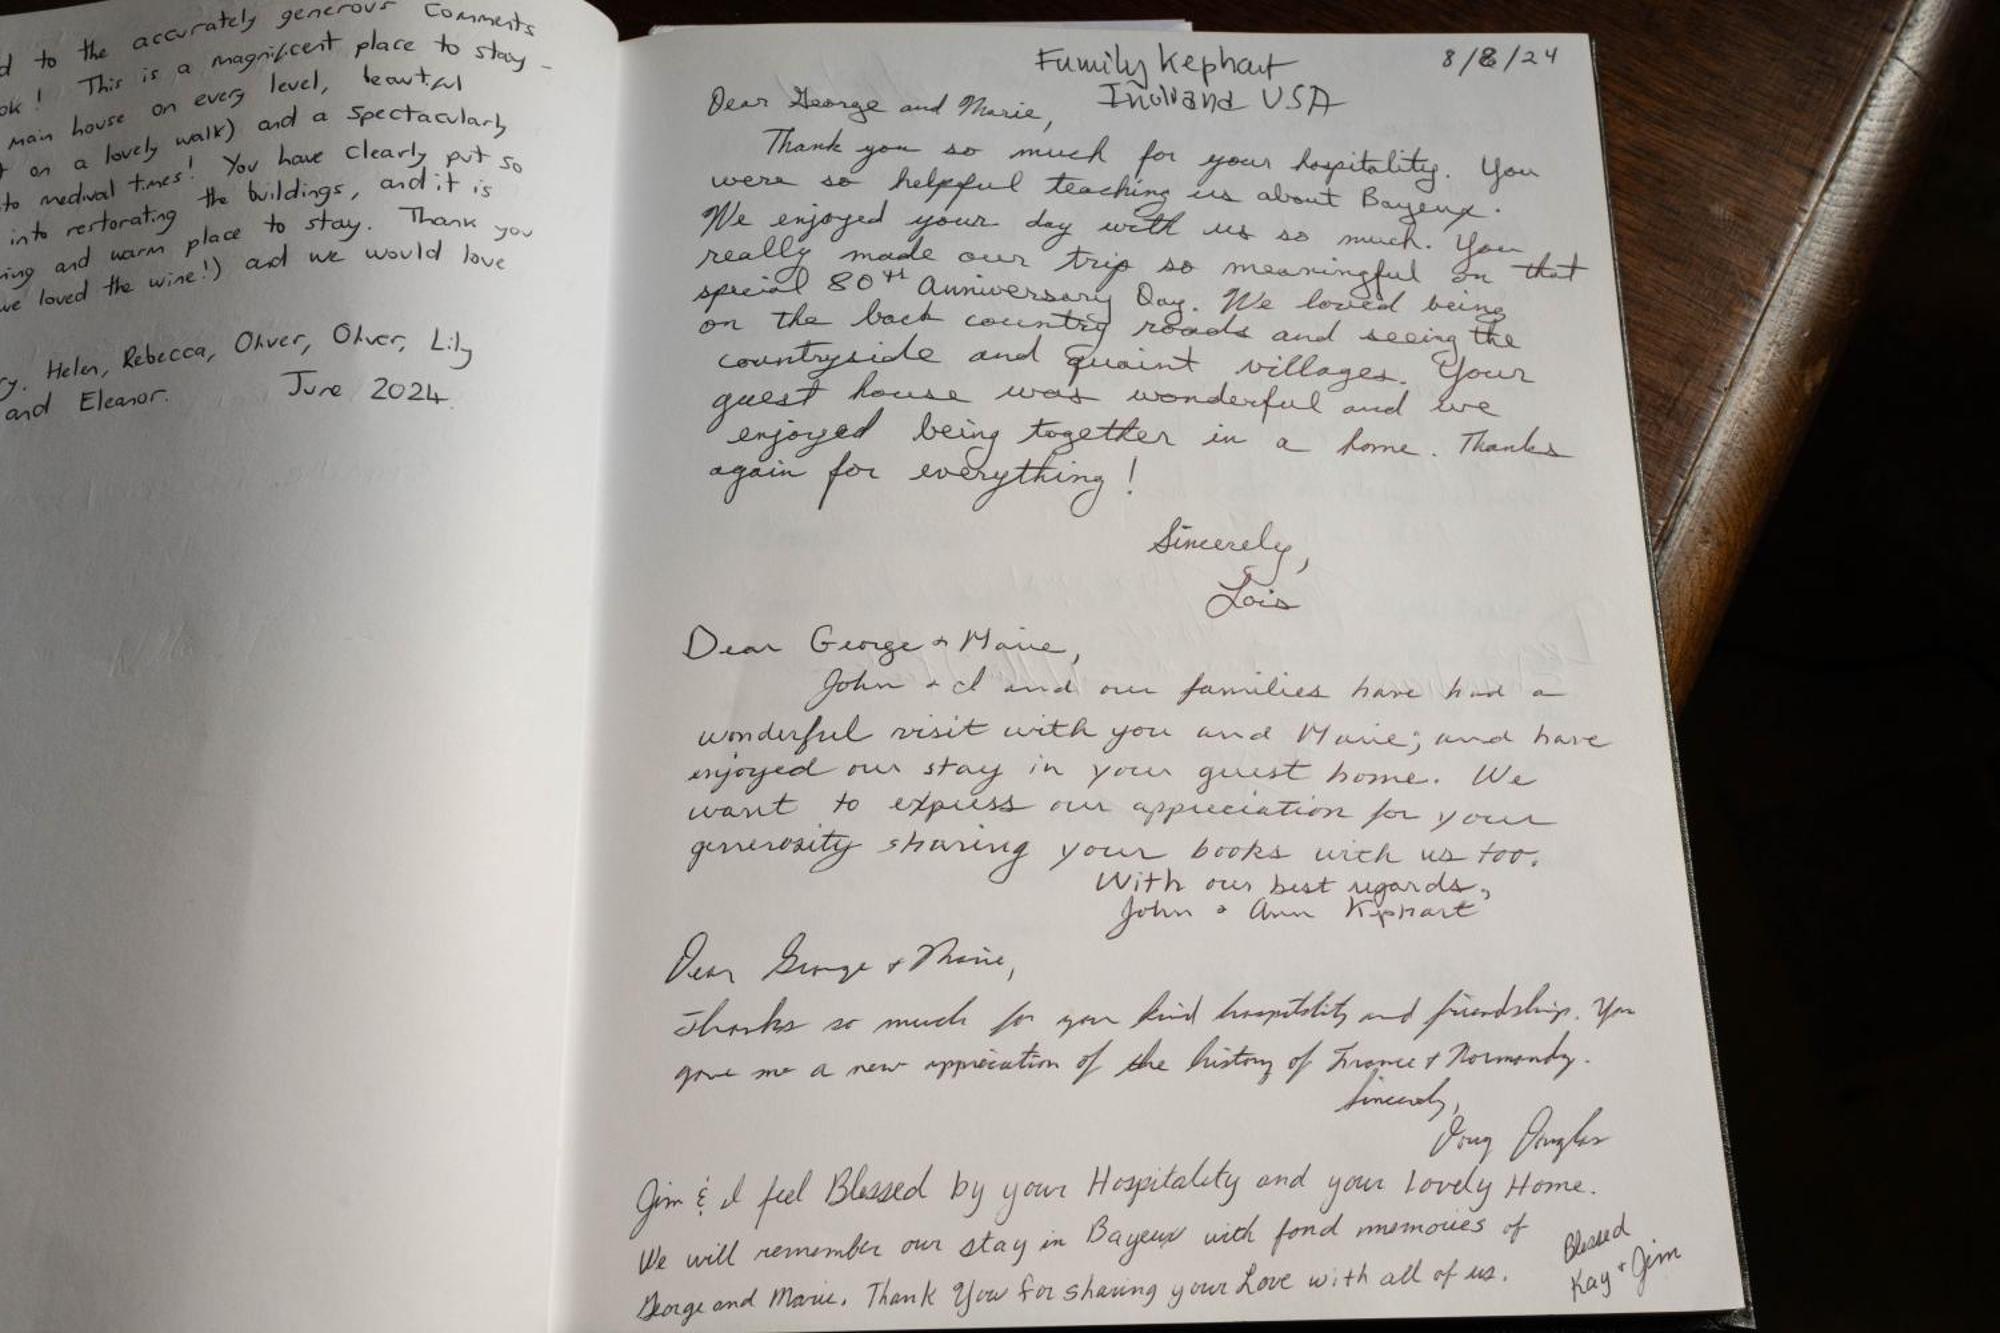 d to the accurately generous comments
ok! This is a magnificent place to stay -
main house on every level, beautiful
t on a lovely walk) and a spectacularly
to medival times! You have clearly put so
into restorating the buildings, and it is
ing and warm place to stay. Thank you
we loved the wine!) and we would love
ry. Helen, Rebecca, Oliver, Oliver, Lily
and Eleanor. June 2024.
Family Kephart 8/8/24
Indiana USA
Dear George and Marie,
Thank you so much for your hospitality. You
were so helpful teaching us about Bayeux.
We enjoyed your day with us so much. You
really made our trip so meaningful on that
special 80th Anniversary Day. We loved being
on the back country roads and seeing the
countryside and quaint villages. Your
guest house was wonderful and we
enjoyed being together in a home. Thanks
again for everything!
Sincerely,
Lois
Dear George + Marie,
John + I and our families have had a
wonderful visit with you and Marie; and have
enjoyed our stay in your guest home. We
want to express our appreciation for your
generosity sharing your books with us too.
With our best regards,
John + Ann Kephart
Dear George + Marie,
Thanks so much for your kind hospitality and friendship. You
gave me a new appreciation of the history of France + Normandy.
Sincerely,
Doug Douglas
Jim & I feel Blessed by your Hospitality and your Lovely Home.
We will remember our stay in Bayeux with fond memories of
George and Marie. Thank You for sharing your Love with all of us.
Blessed
Kay + Jim